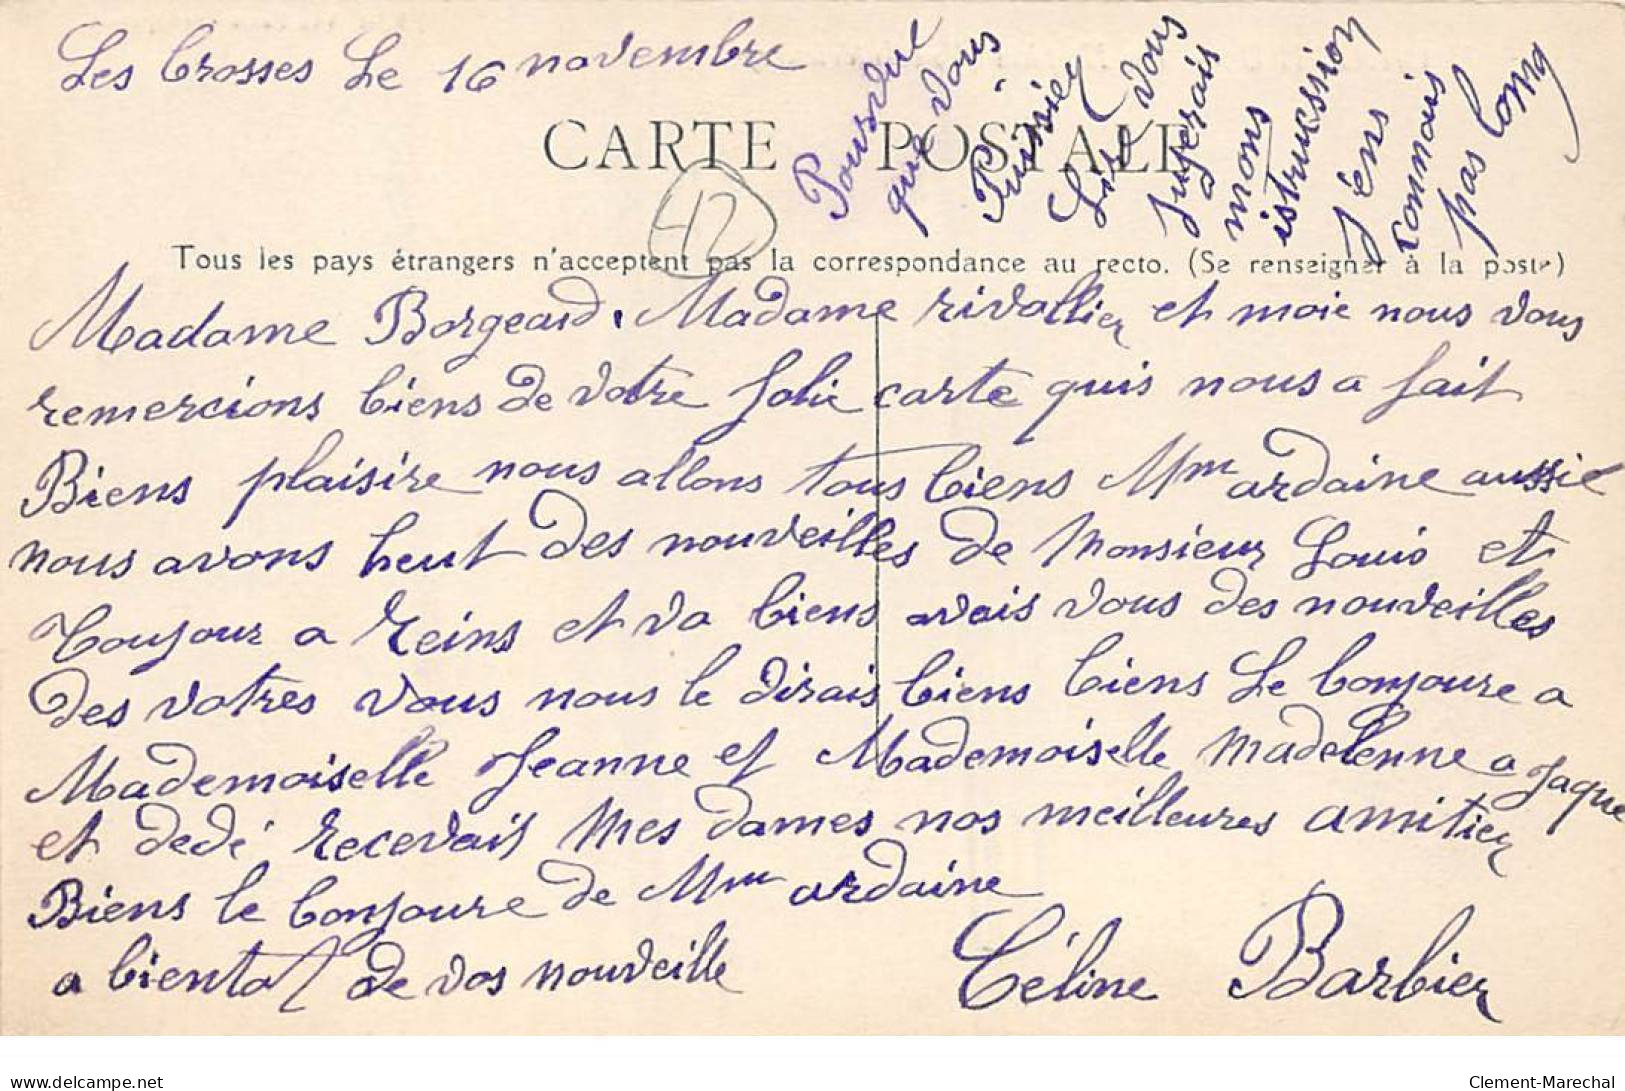 Les Crosses Le 16 novembre
Pourvue
que vous
Puissiez
Lire vous
Jugerais
mons
istrucssion
J'éns
connais
pas long
CARTE POSTALE
42
Tous les pays étrangers n'acceptent pas la correspondance au recto. (Se renseigner à la poste)
Madame Borgeaud. Madame rivallier et moie nous vous
remercions biens de votre Jolie carte quis nous a fait
Biens plaisire nous allons tous biens Mme ardaine aussie
nous avons heut des nouveilles de Monsieur Louis et
Toujour a reins et va biens avais vous des nouveilles
des votres vous nous le dirais biens biens Le bonjoure a
Mademoiselle Jeanne et Mademoiselle Madelenne a Jaque
et dedé recevais Mes dames nos meilleures amitier
Biens le bonjoure de Mme ardaine
a bientot de vos nouveille
Céline Barbier
Clement-Marechal
www.delcampe.net